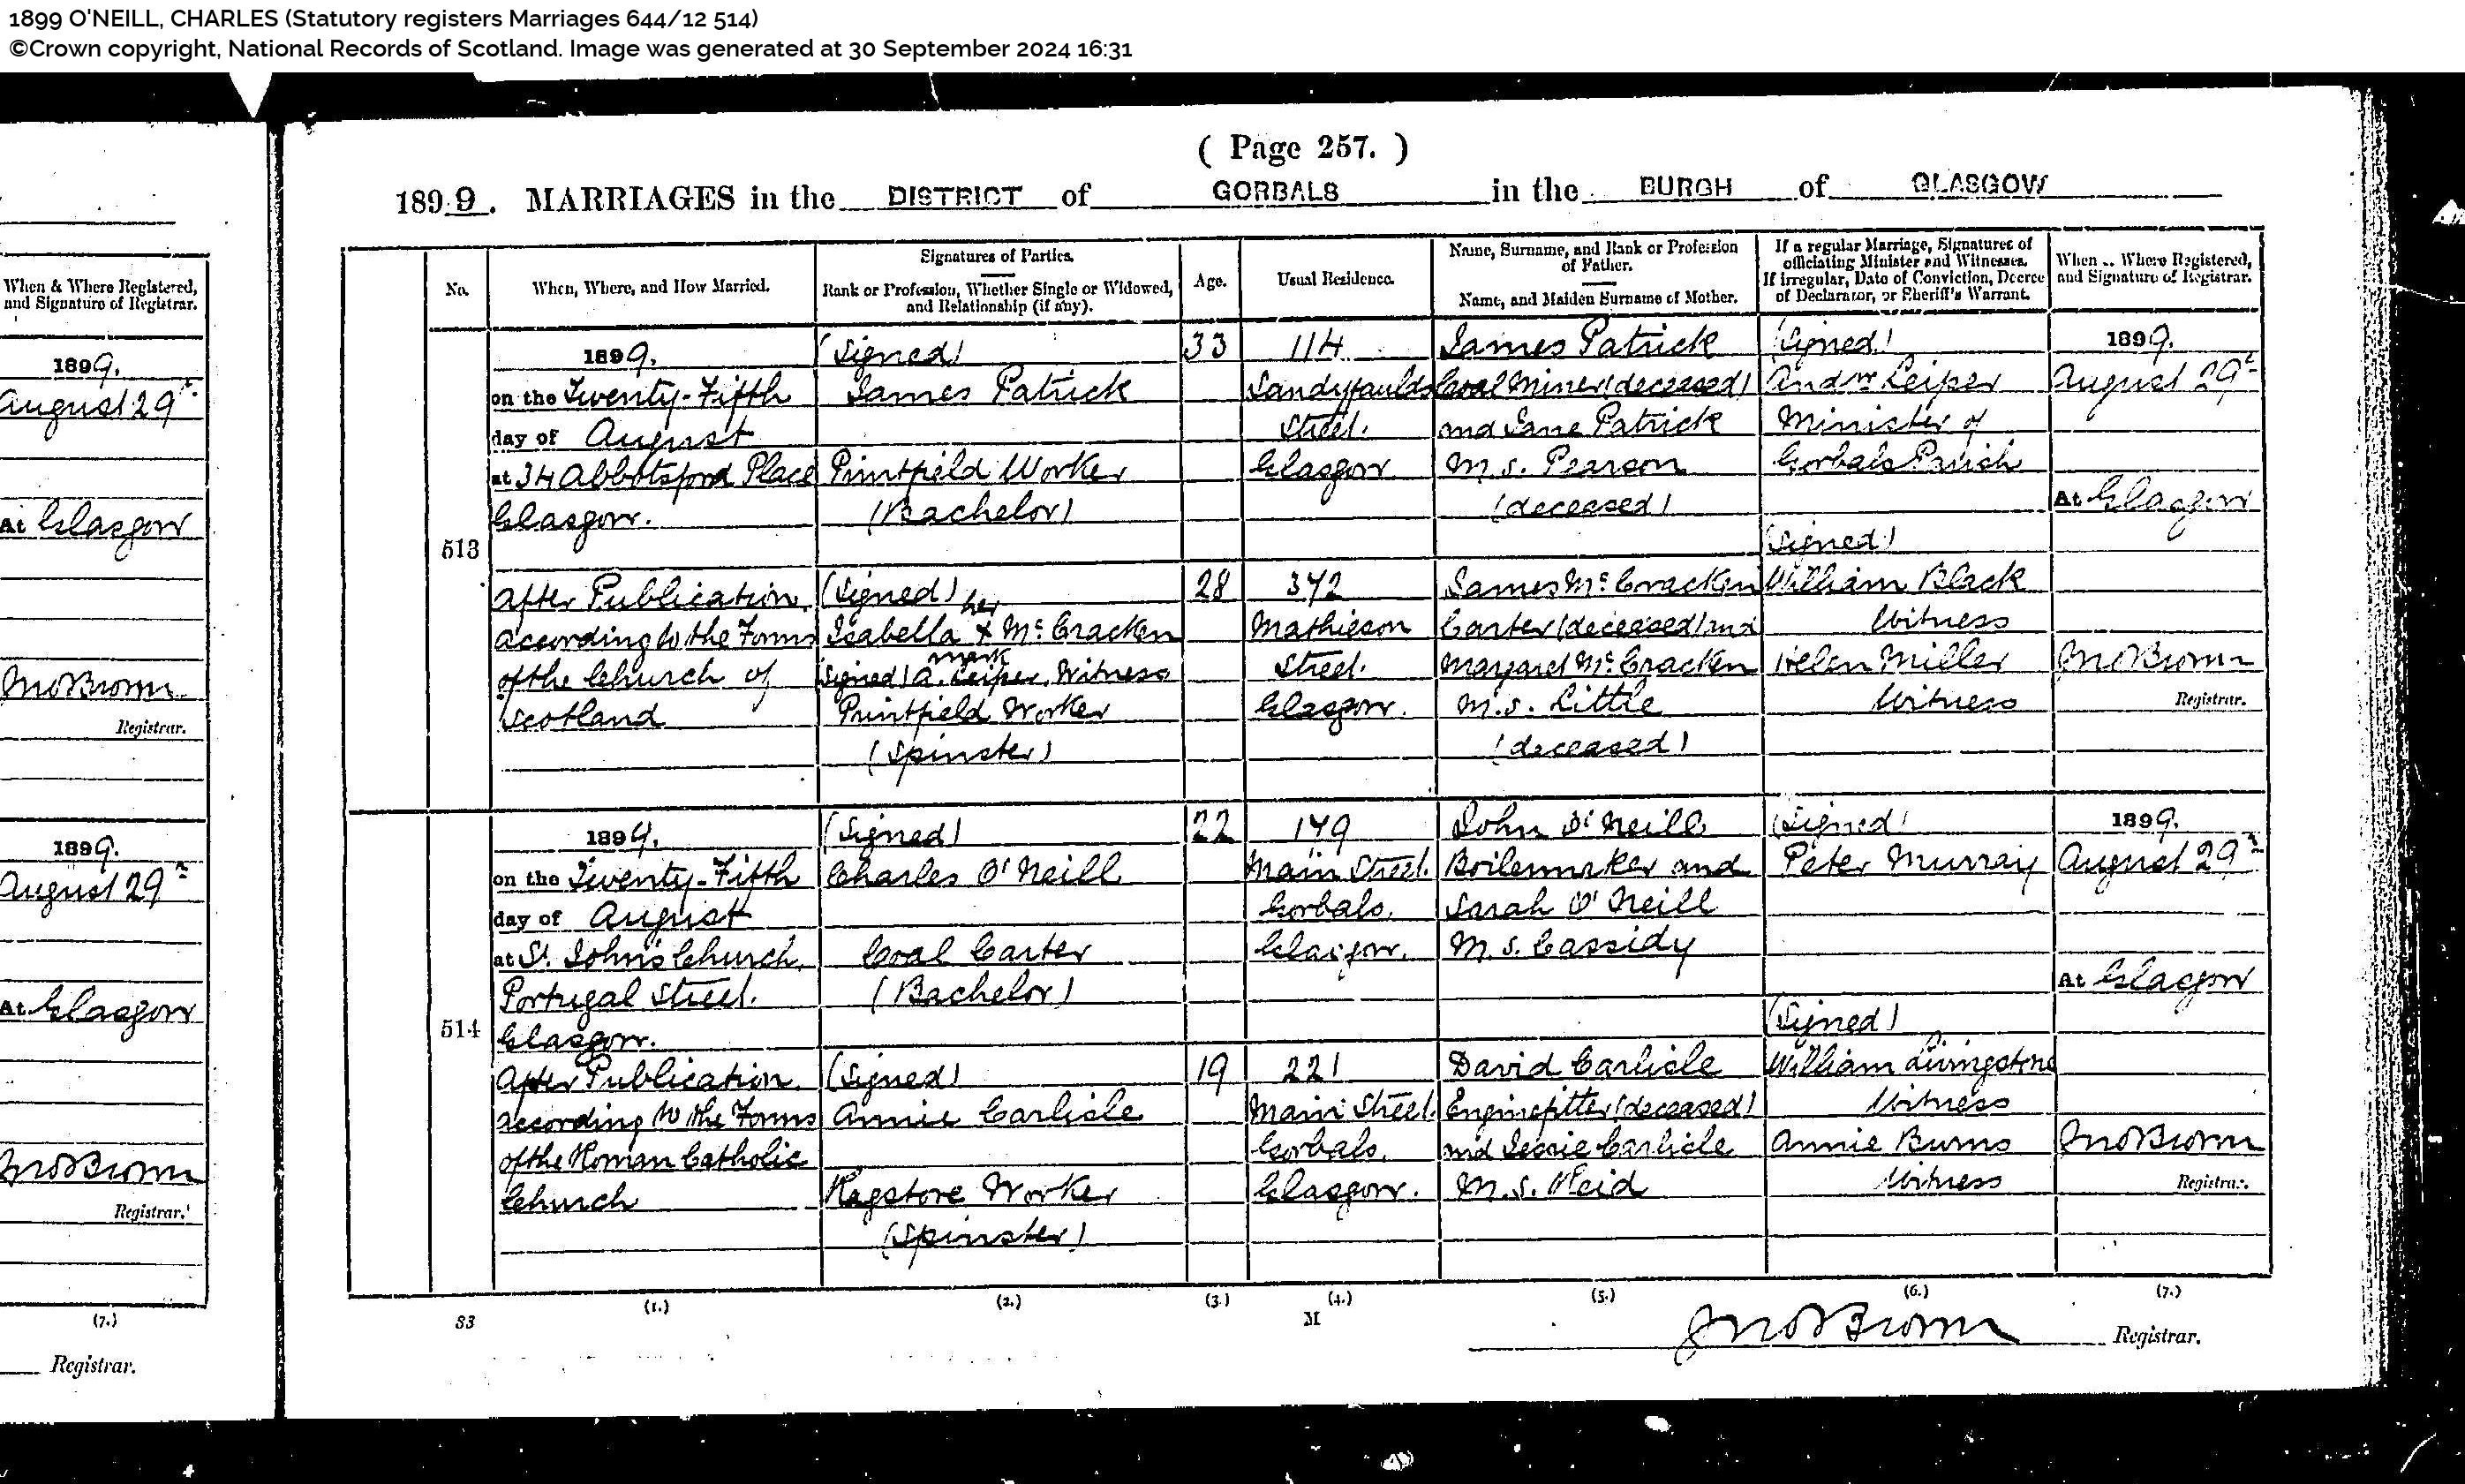 1899 O'NEILL, CHARLES (Statutory registers Marriages 644/12 514)
©Crown copyright, National Records of Scotland. Image was generated at 30 September 2024 16:31
When & Where Registered,
and Signature of Registrar.
1899.
August 29
At Glasgow
Jno Brown
Registrar.
1899.
August 29
At Glasgow
Jno Brown
Registrar.
(7.)
Registrar.
( Page 257. )
1899. MARRIAGES in the DISTRICT of GORBALS in the BURGH of GLASGOW
No.
When, Where, and How Married.
Signatures of Parties.
Rank or Profession, Whether Single or Widowed,
and Relationship (if any).
Age.
Usual Residence.
Name, Surname, and Rank or Profession
of Father.
Name, and Maiden Surname of Mother.
If a regular Marriage, Signatures of
officiating Minister and Witnesses.
If irregular, Date of Conviction, Decree
of Declarator, or Sheriff's Warrant.
When .. Where Registered,
and Signature of Registrar.
513
1899.
on the Twenty-Fifth
day of August
at 34 Abbotsford Place
Glasgow.
After Publication,
according to the Forms
of the Church of
Scotland
(Signed)
James Patrick
Printfield Worker
(Bachelor)
(Signed) her
Isabella x McCracken
mark
(Signed) A. Leiper, Witness
Printfield Worker
(Spinster)
33
28
114
Sandyfaulds
Street.
Glasgow
372
Mathieson
Street.
Glasgow.
James Patrick
Coal Miner (deceased)
and Jane Patrick
M.S. Pearson
(deceased)
James McCracken
Carter (deceased) and
Margaret McCracken
M.S. Little
(deceased)
(Signed)
Andw Leiper
Minister of
Gorbals Parish
(Signed)
William Black
Witness
Helen Miller
Witness
1899.
August 29
At Glasgow
Jno Brown
Registrar.
514
1899.
on the Twenty-Fifth
day of August
at St. John's Church,
Portugal Street.
Glasgow.
After Publication,
according to the Forms
of the Roman Catholic
Church
(Signed)
Charles O'Neill
Coal Carter
(Bachelor)
(Signed)
Annie Carlisle
Ragstore Worker
(Spinster)
22
19
179
Main Street.
Gorbals.
Glasgow.
221
Main Street.
Gorbals.
Glasgow.
John O'Neill
Boilermaker and
Sarah O'Neill
M.S. Cassidy
David Carlisle
Enginefitter (deceased)
and Jessie Carlisle
M.S. Reid
(Signed)
Peter Murray
(Signed)
William Livingstone
Witness
Annie Burns
Witness
1899.
August 29
At Glasgow
Jno Brown
Registrar.
(1.) (2.) (3.) (4.) (5.) (6.) (7.)
33
M
Jno Brown Registrar.